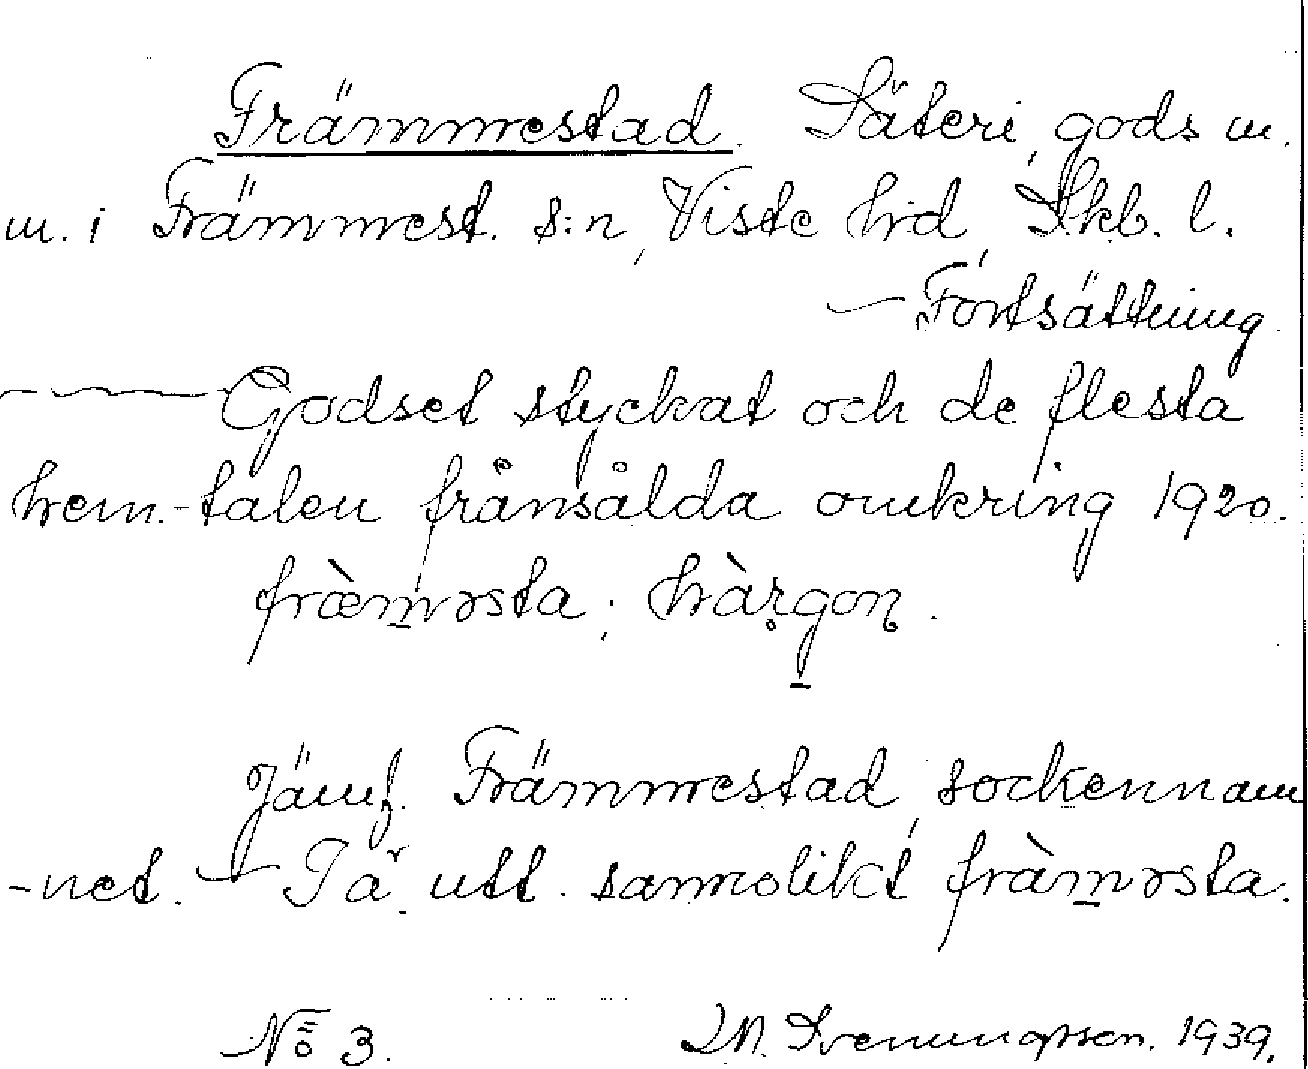 Främmestad. Säteri, gods m.
m. i Främmest. s:n, Viste hrd, Skb. l.
— Fortsättning.
Godset styckat och de flesta
hem.-talen frånsålda omkring 1920.
fræ̀mɘsta; hàrgon.
Jämf. Främmestad, sockennam
-net. — Tä. utt. samolikt fràmɘsta.
No 3. 1939.